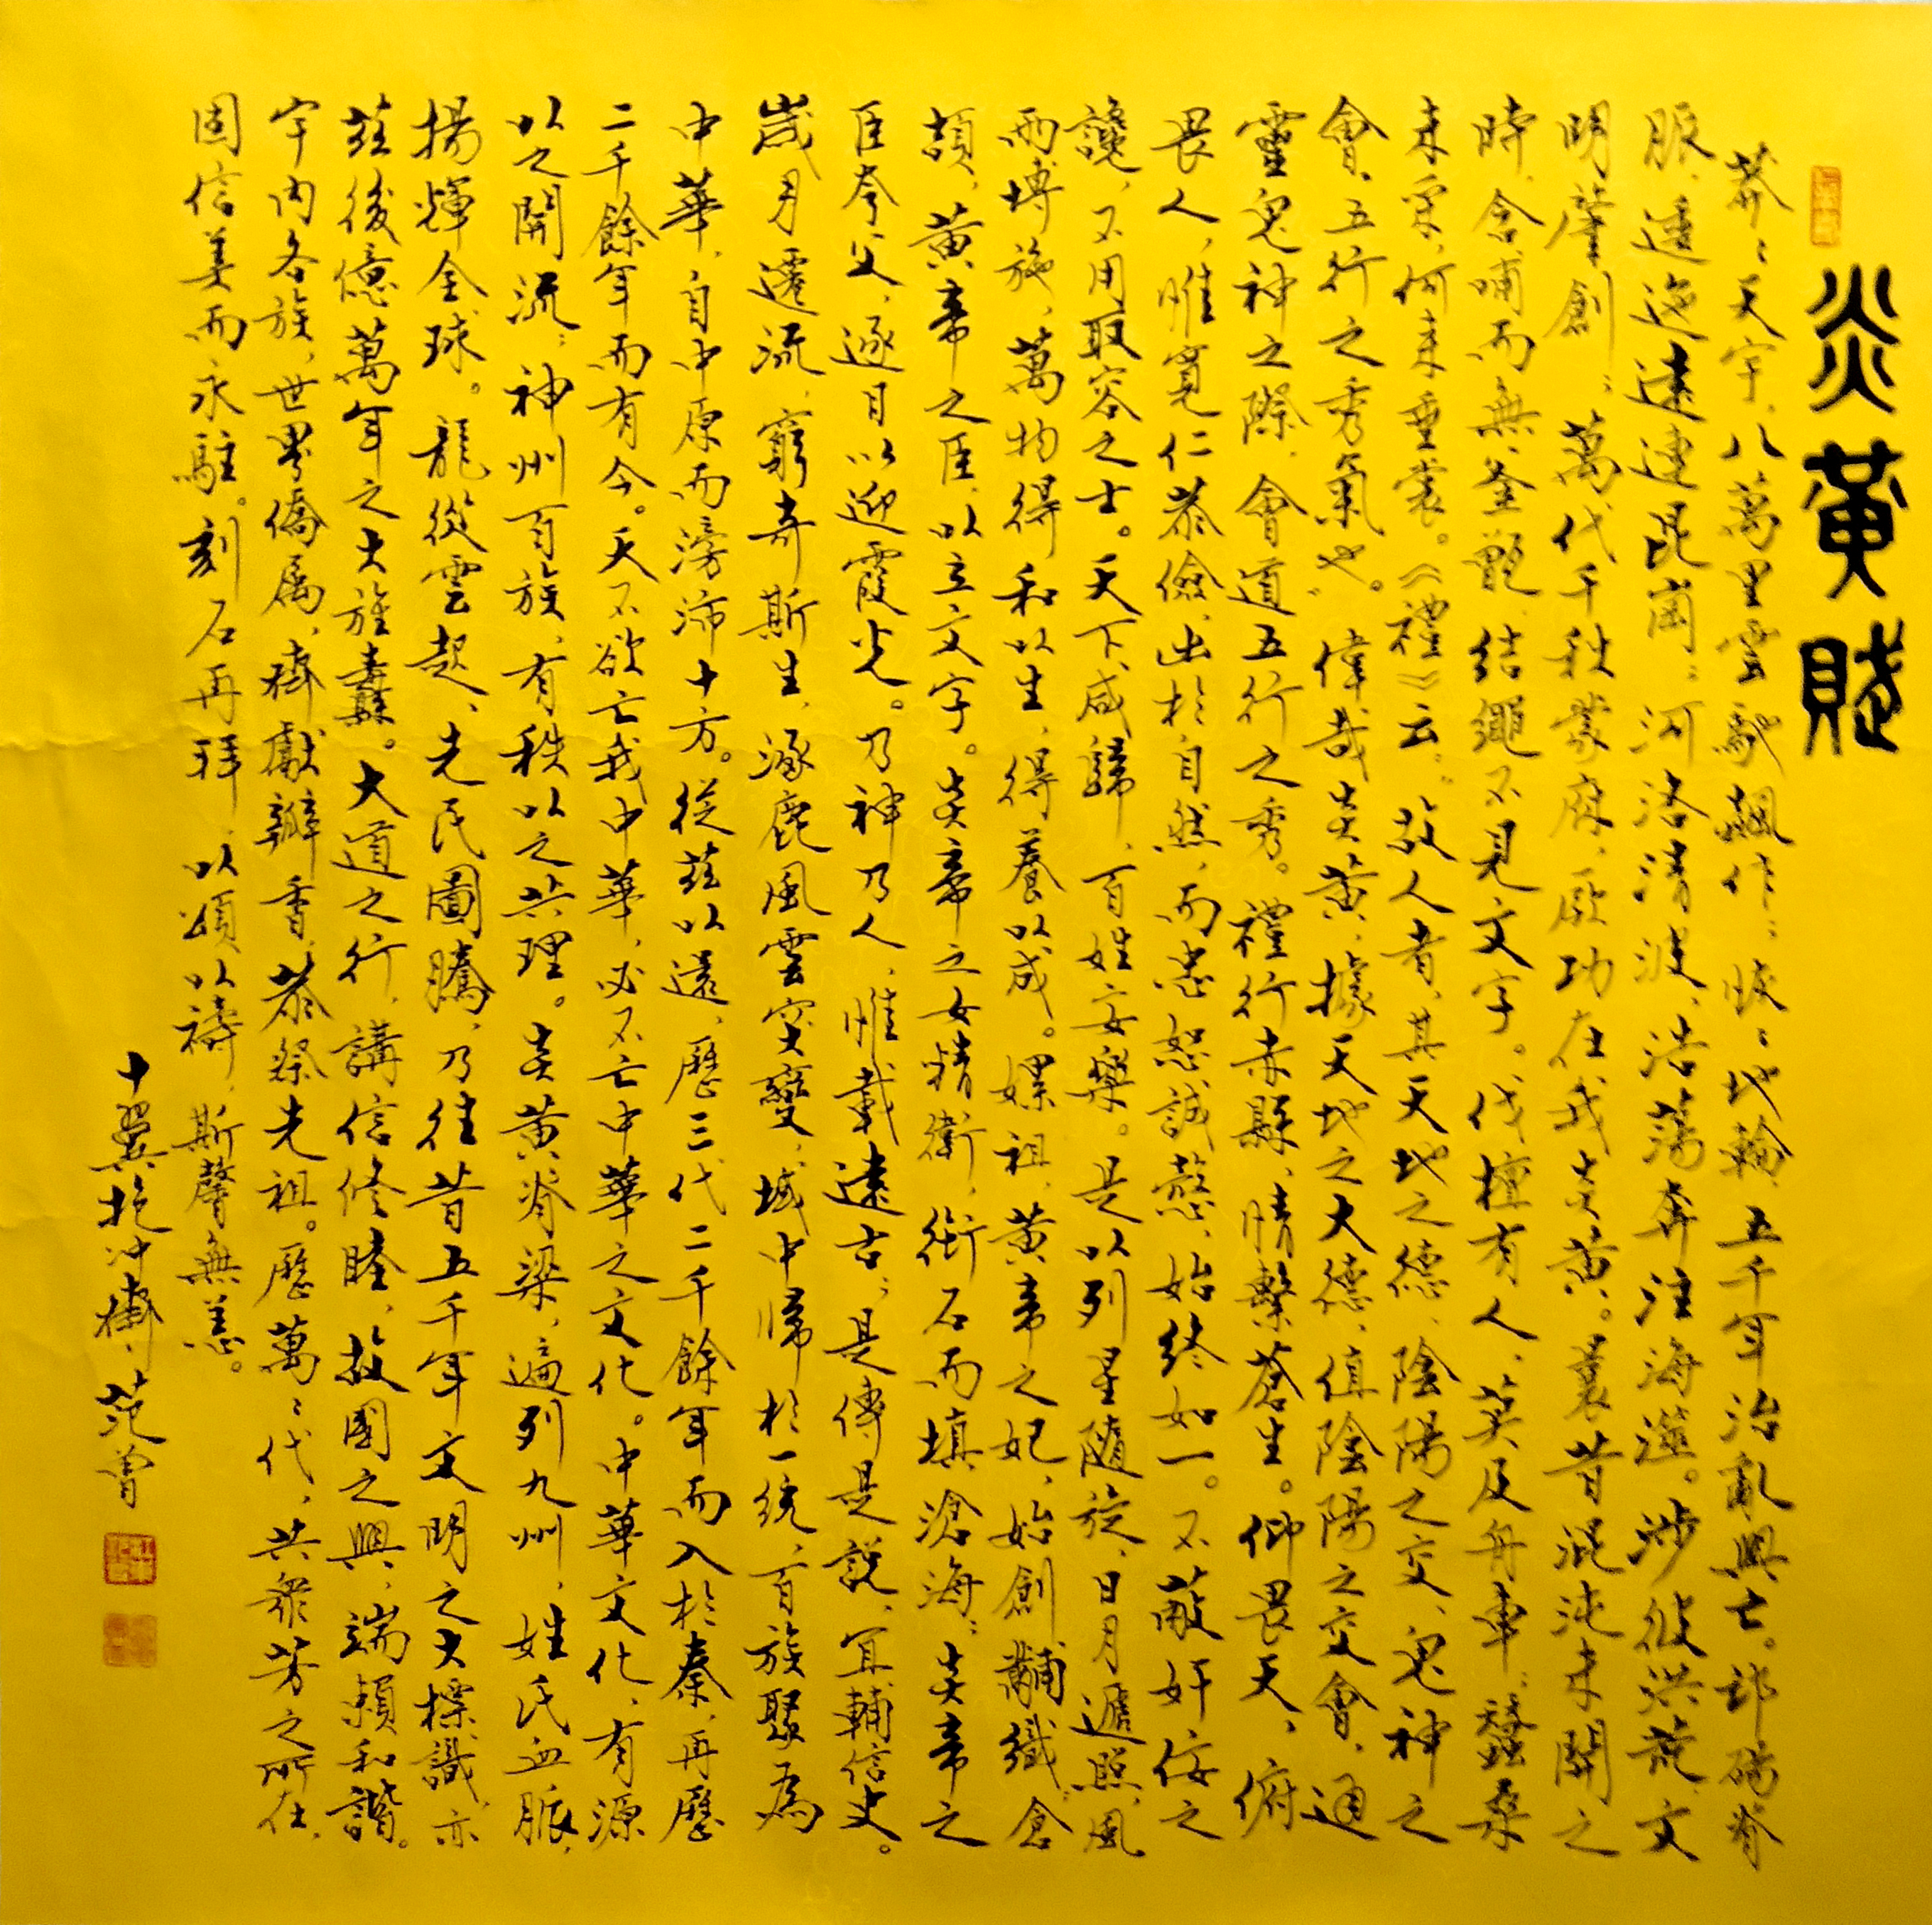 炎黃賦
莽〻天宇，八萬里雲馳飆作；決〻地輪，五千年治亂興亡。邙碭脊
脈，逶迤遠連昆崗；河洛清波，浩蕩奔注海澨。涉彼洪荒，文
明肇創；萬代千秋蒙庥，厥功在我炎黃。曩昔混沌未開之
時，含哺而無釜甑，結繩不見文字。伐檀有人，奚及舟車；蠶桑
未采，何來垂裳。《禮》云：故人者，其天地之德，陰陽之交，鬼神之
會，五行之秀氣也。偉哉炎黃，據天地之大德，值陰陽之交會，通
靈鬼神之際，會道五行之秀。禮行赤縣，情繫蒼生。仰畏天，俯
畏人，唯寬仁恭儉，出於自然，而忠恕誠愨，始終如一。不蔽奸佞之
讒，不用取容之士。天下咸歸，百姓安樂。是以列星隨旋，日月遞照，風
雨博施，萬物得和以生，得養以成。嫘祖，黃帝之妃，始創黼織；倉
頡，黃帝之臣，以立文字。炎帝之女精衛，銜石而填滄海；炎帝之
臣夸父，逐日以迎霞光。乃神乃人，惟載遠古；是傳是說，宜輔信史。
歲月遷流，窮奇斯生，涿鹿風雲突變，域中歸於一統，百族聚為
中華，自中原而滂沛十方。從茲以還，歷三代二千餘年而入於秦，再歷
二千餘年而有今。天不欲亡我中華，必不亡中華之文化。中華文化，有源
以之開流；神州百族，有秩以之共理。炎黃脊梁，遍列九州，姓氏血脈，
揚輝全球。龍從雲起，先民圖騰，乃往昔五千年文明之大標識，亦
茲後億萬年之大旌纛。大道之行，講信修睦，故國之興，端賴和諧。
宇內各族，世界僑屬，齊獻瓣香，恭祭先祖。歷萬〻代，共眾芳之所在，
固信美而永駐。刻石再拜，以頌以禱，斯馨無恙。
十翼抱沖齋，范曾